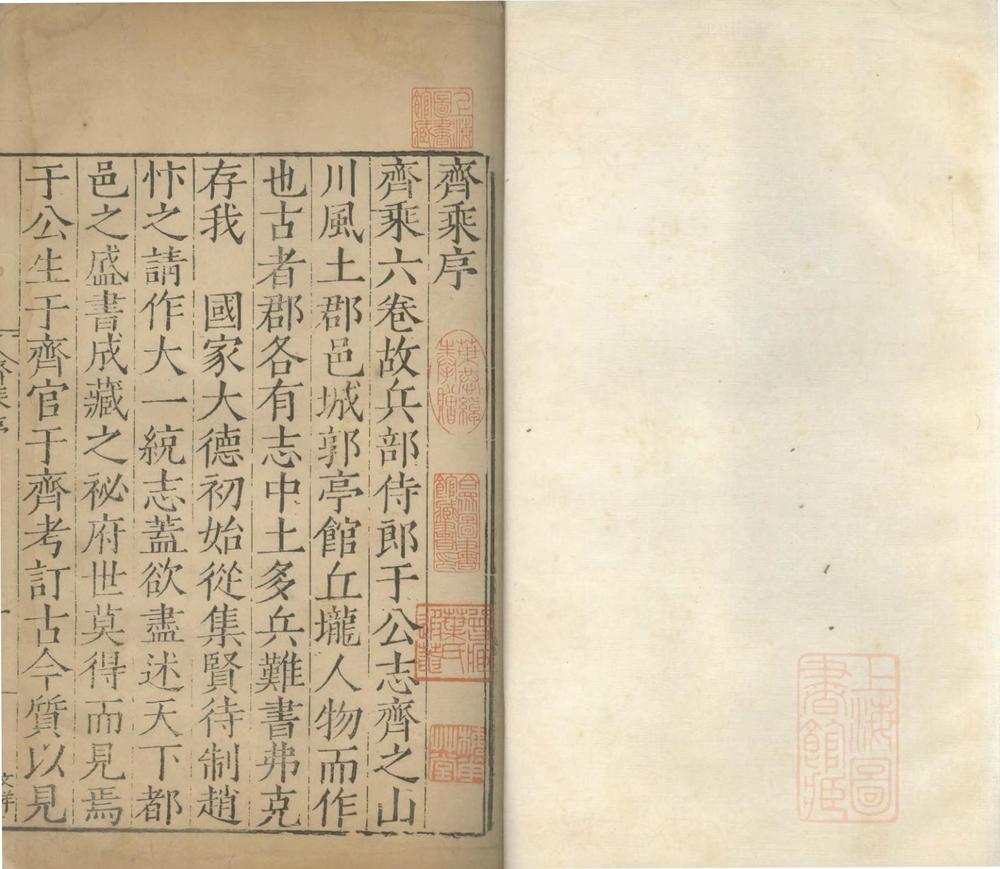 齊乘序
齊乘六卷故兵部侍郎于公志齊之山
川風土郡邑城郭亭館丘壠人物而作
也古者郡各有志中土多兵難書弗克
存我　國家大德初始從集賢待制趙
忭之請作大一統志蓋欲盡述天下都
邑之盛書成藏之祕府世莫得而見焉
于公生于齊官于齊考訂古今質以見
上海圖書館藏
上海圖書館藏